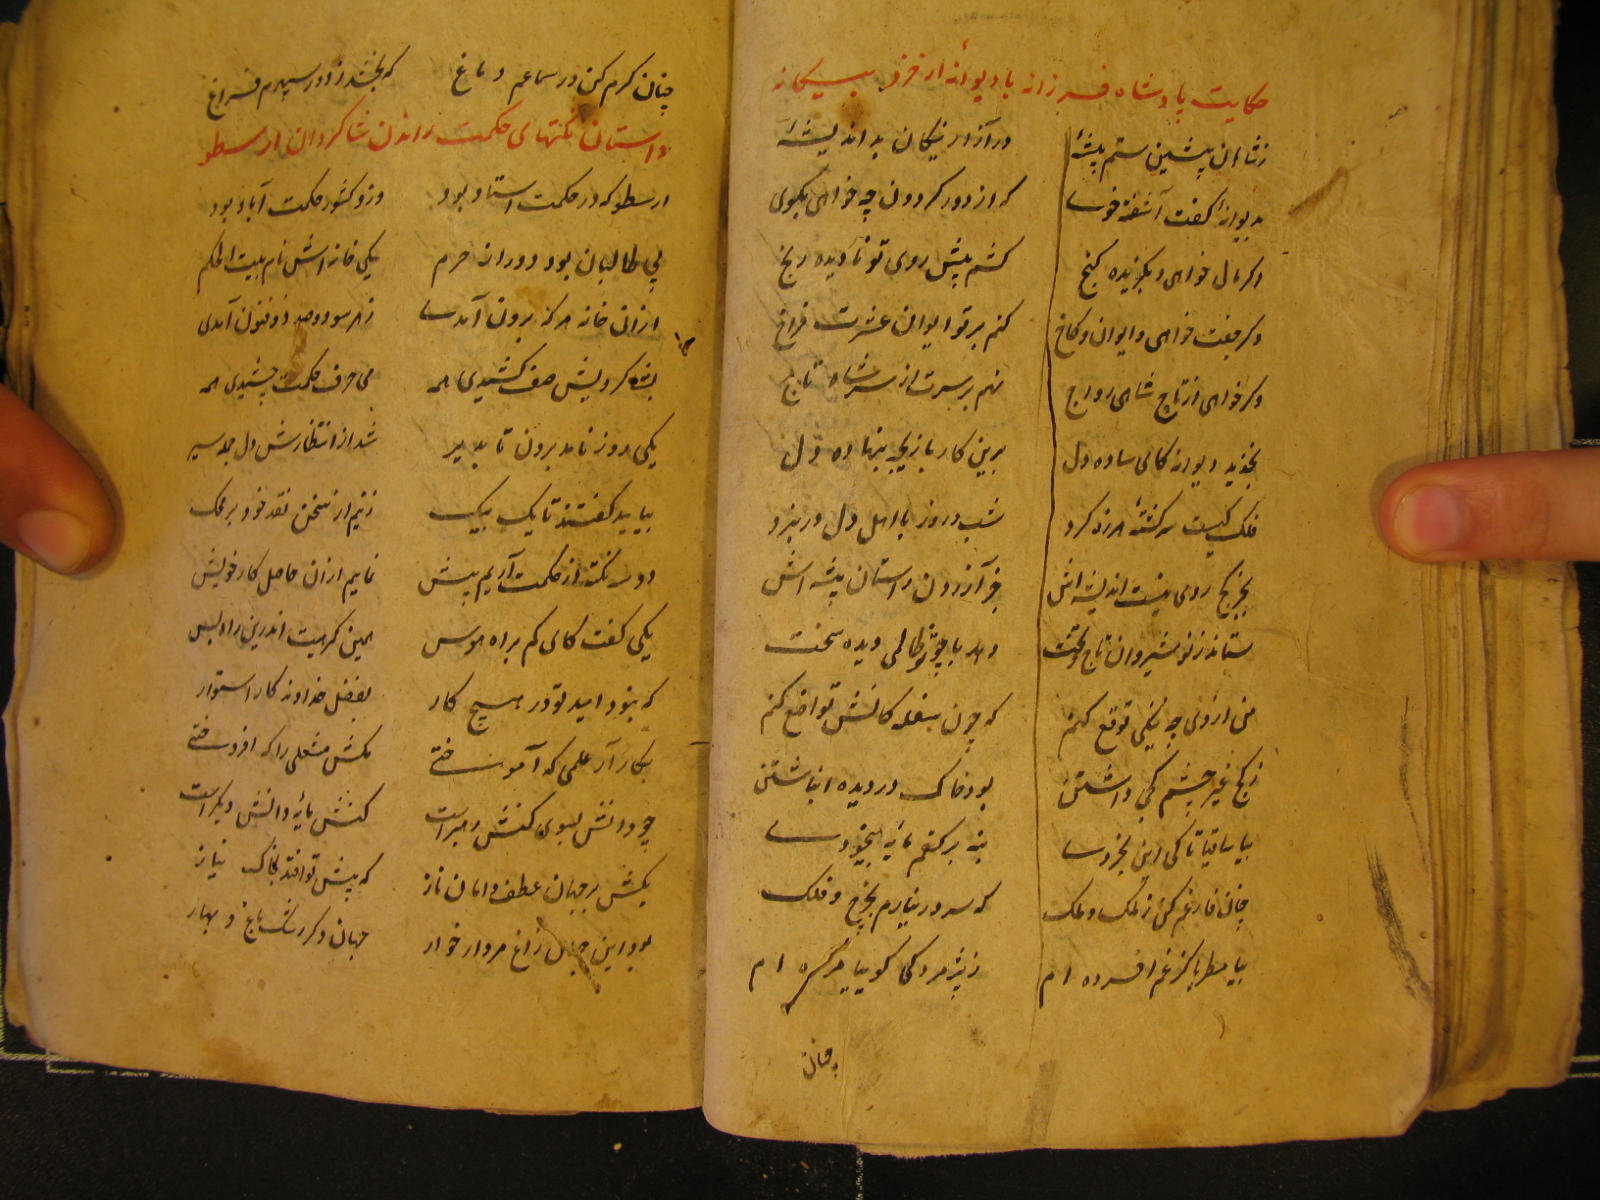 حکایت پادشاه فرزانه با دیوانه از خرد بیگانه
ز شاهان پیشین ستم پیشهٔ در آزار نیکان بد اندیشهٔ
بدیوانهٔ گفت آشفته خوی که از دور گردون چه خواهی بگوی
اگر مال خواهی و بگزیده گنج کشم پیش روی تو نادیده رنج
وگر جفت خواهی و ایوان و کاخ کنم بر تو ایوان عشرت فراخ
وگر خواهی از تاج شاهی رواج نهم بر سرت از سر شاه تاج
بخندید دیوانه کای ساده دل برین کار بازیچه بنهاده دل
فلک کیست سرگشتهٔ هرزه گرد شب و روز با اهل دل در نبرد
بجز کج روی نیست اندیشه‌اش جز آزردن راستان پیشه‌اش
ستاند ز نوشیروان تاج و تخت دهد با چو تو ظالمی دیده سخت
من از وی چه نیکی توقع کنم که چون سفله‌گانش تواضع کنم
ز کج غیر چشم کجی داشتن بود خاک در دیده انباشتن
بیا ساقیا تا کی این بخردی بنه بر کفم مایهٔ بیخودی
چنان فارغم کن ز ملک و ملک که سر در نیارم بچرخ و فلک
بیا مطربا کز غم افسرده ام ز پژمردگی گوییا مرده ام
چنان
چنان گرم کن در سماعم دماغ که بخشد ز دور سپهرم فراغ
داستان نکتهای حکمت راندن شاگردان ارسطو
ارسطو که در حکمت استاد بود وزو کشور حکمت آباد بود
پی طالبان بود دوران حرم یکی خانه‌اش نام بیت الحکم
ازان خانه هرگه برون آمدی ز هر سو دو صد ذوفنون آمدی
بشاگردیش صف کشیدی همه می حرف حکمت چشیدی همه
یکی روز نامد برون تا بدیر شد از انتظارش دل جمله سیر
بیایید گفتند تا یک بیک زنیم از سخن نقد خود بر محک
دو سه نکته از حکمت آریم پیش نماییم ازان حاصل کار خویش
یکی گفت کای کم براه هوس همین گفت اندرین راه بس
که نبود امید تو در هیچ کار بفضل خداوند کار استوار
بکار آر علمی که آموختی مکش مشعلی را که افروختی
چو دانش بسوی کنش رهبر است کنش مایهٔ دانش دیگر است
بکش بر جهان عطف دامان ناز که پیش تو افتد بخاک نیاز
بود این جهان زاغ مردار خوار جهان دگر رشک باغ و بهار